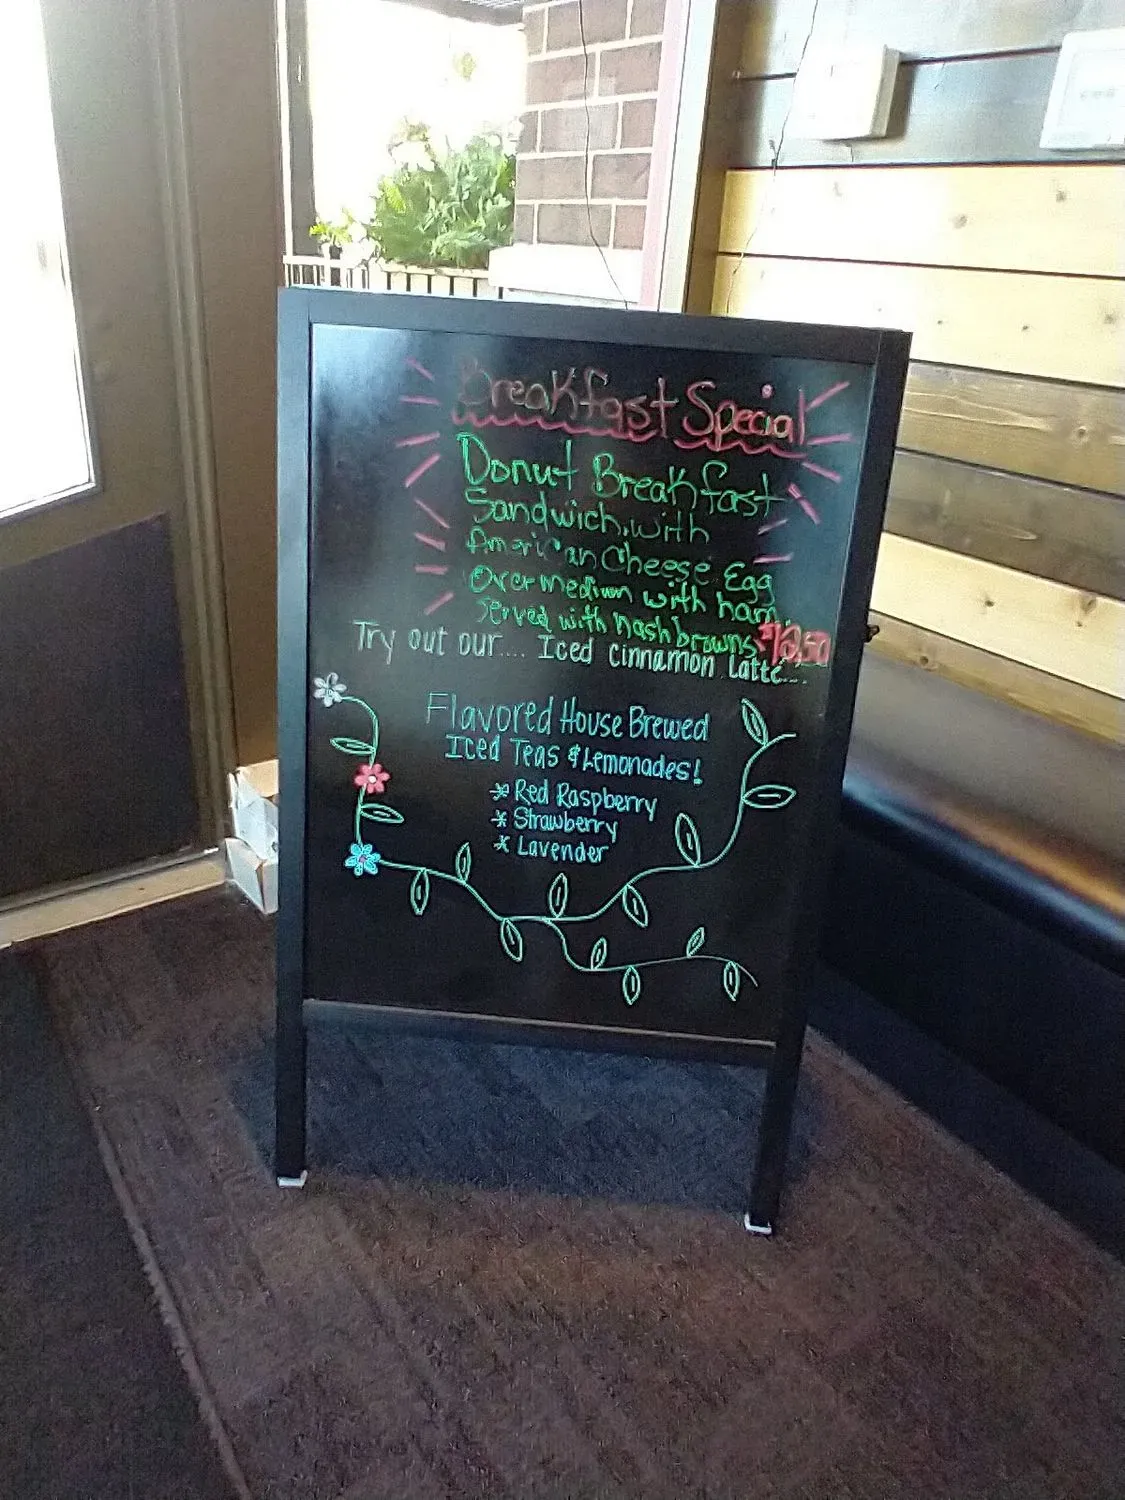 Breakfast Special
Donut Breakfast
Sandwich, with
American Cheese Egg
Over medium with ham.
Served with hashbrowns $12.50
Try out our.... Iced Cinnamon Latté....
Flavored House Brewed
Iced Teas & Lemonades!
* Red Raspberry
* Strawberry
* Lavender